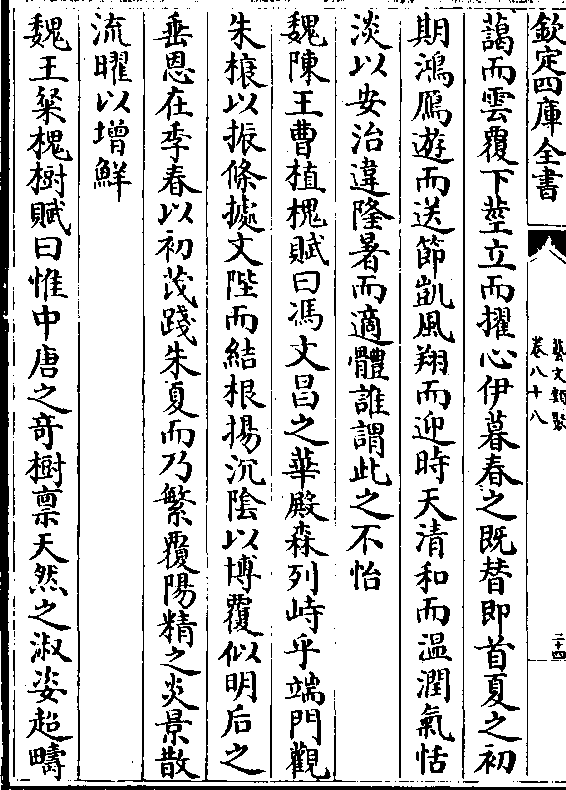 欽定四庫全書
藝文類聚
卷八十八
二十四
藹而雲覆下莖立而擢心伊暮春之既替即首夏之初
期鴻鴈遊而送節凱風翔而迎時天清和而温潤氣恬
淡以安治違隆暑而適體誰謂此之不怡
魏陳王曹植槐賦曰馮文昌之華殿森列峙乎端門觀
朱榱以振條據文陛而結根揚沉陰以博覆似明后之
垂恩在季春以初茂踐朱夏而乃繁覆陽精之炎景散
流曜以增鮮
魏王粲槐樹賦曰惟中唐之竒樹禀天然之淑姿超疇